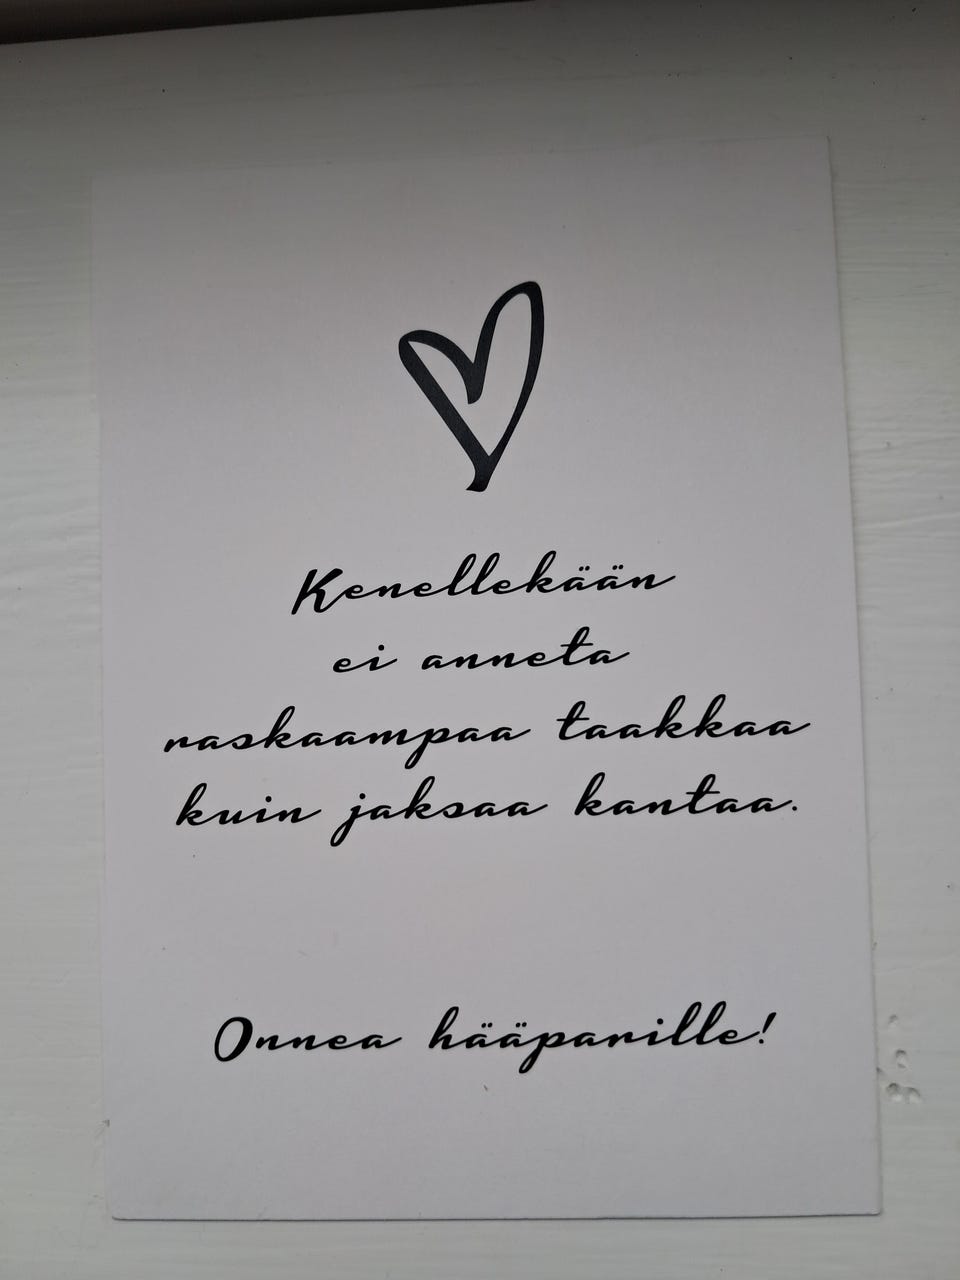 Kenellekään
ei anneta
raskaampaa taakkaa
kuin jaksaa kantaa.
Onnea hääparille!